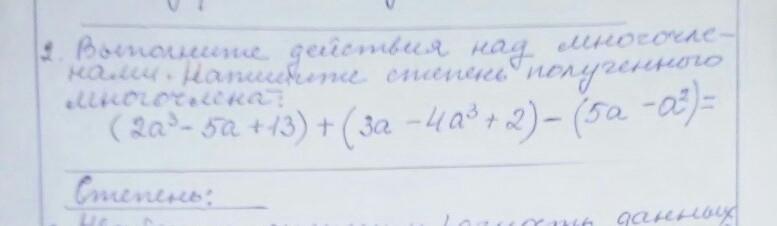 2. Выполните действия над многочле-
нами. Напишите степень полученного
многочлена:
(2a³ - 5a + 13) + (3a - 4a³ + 2) - (5a - a²) =
Степень:
данных